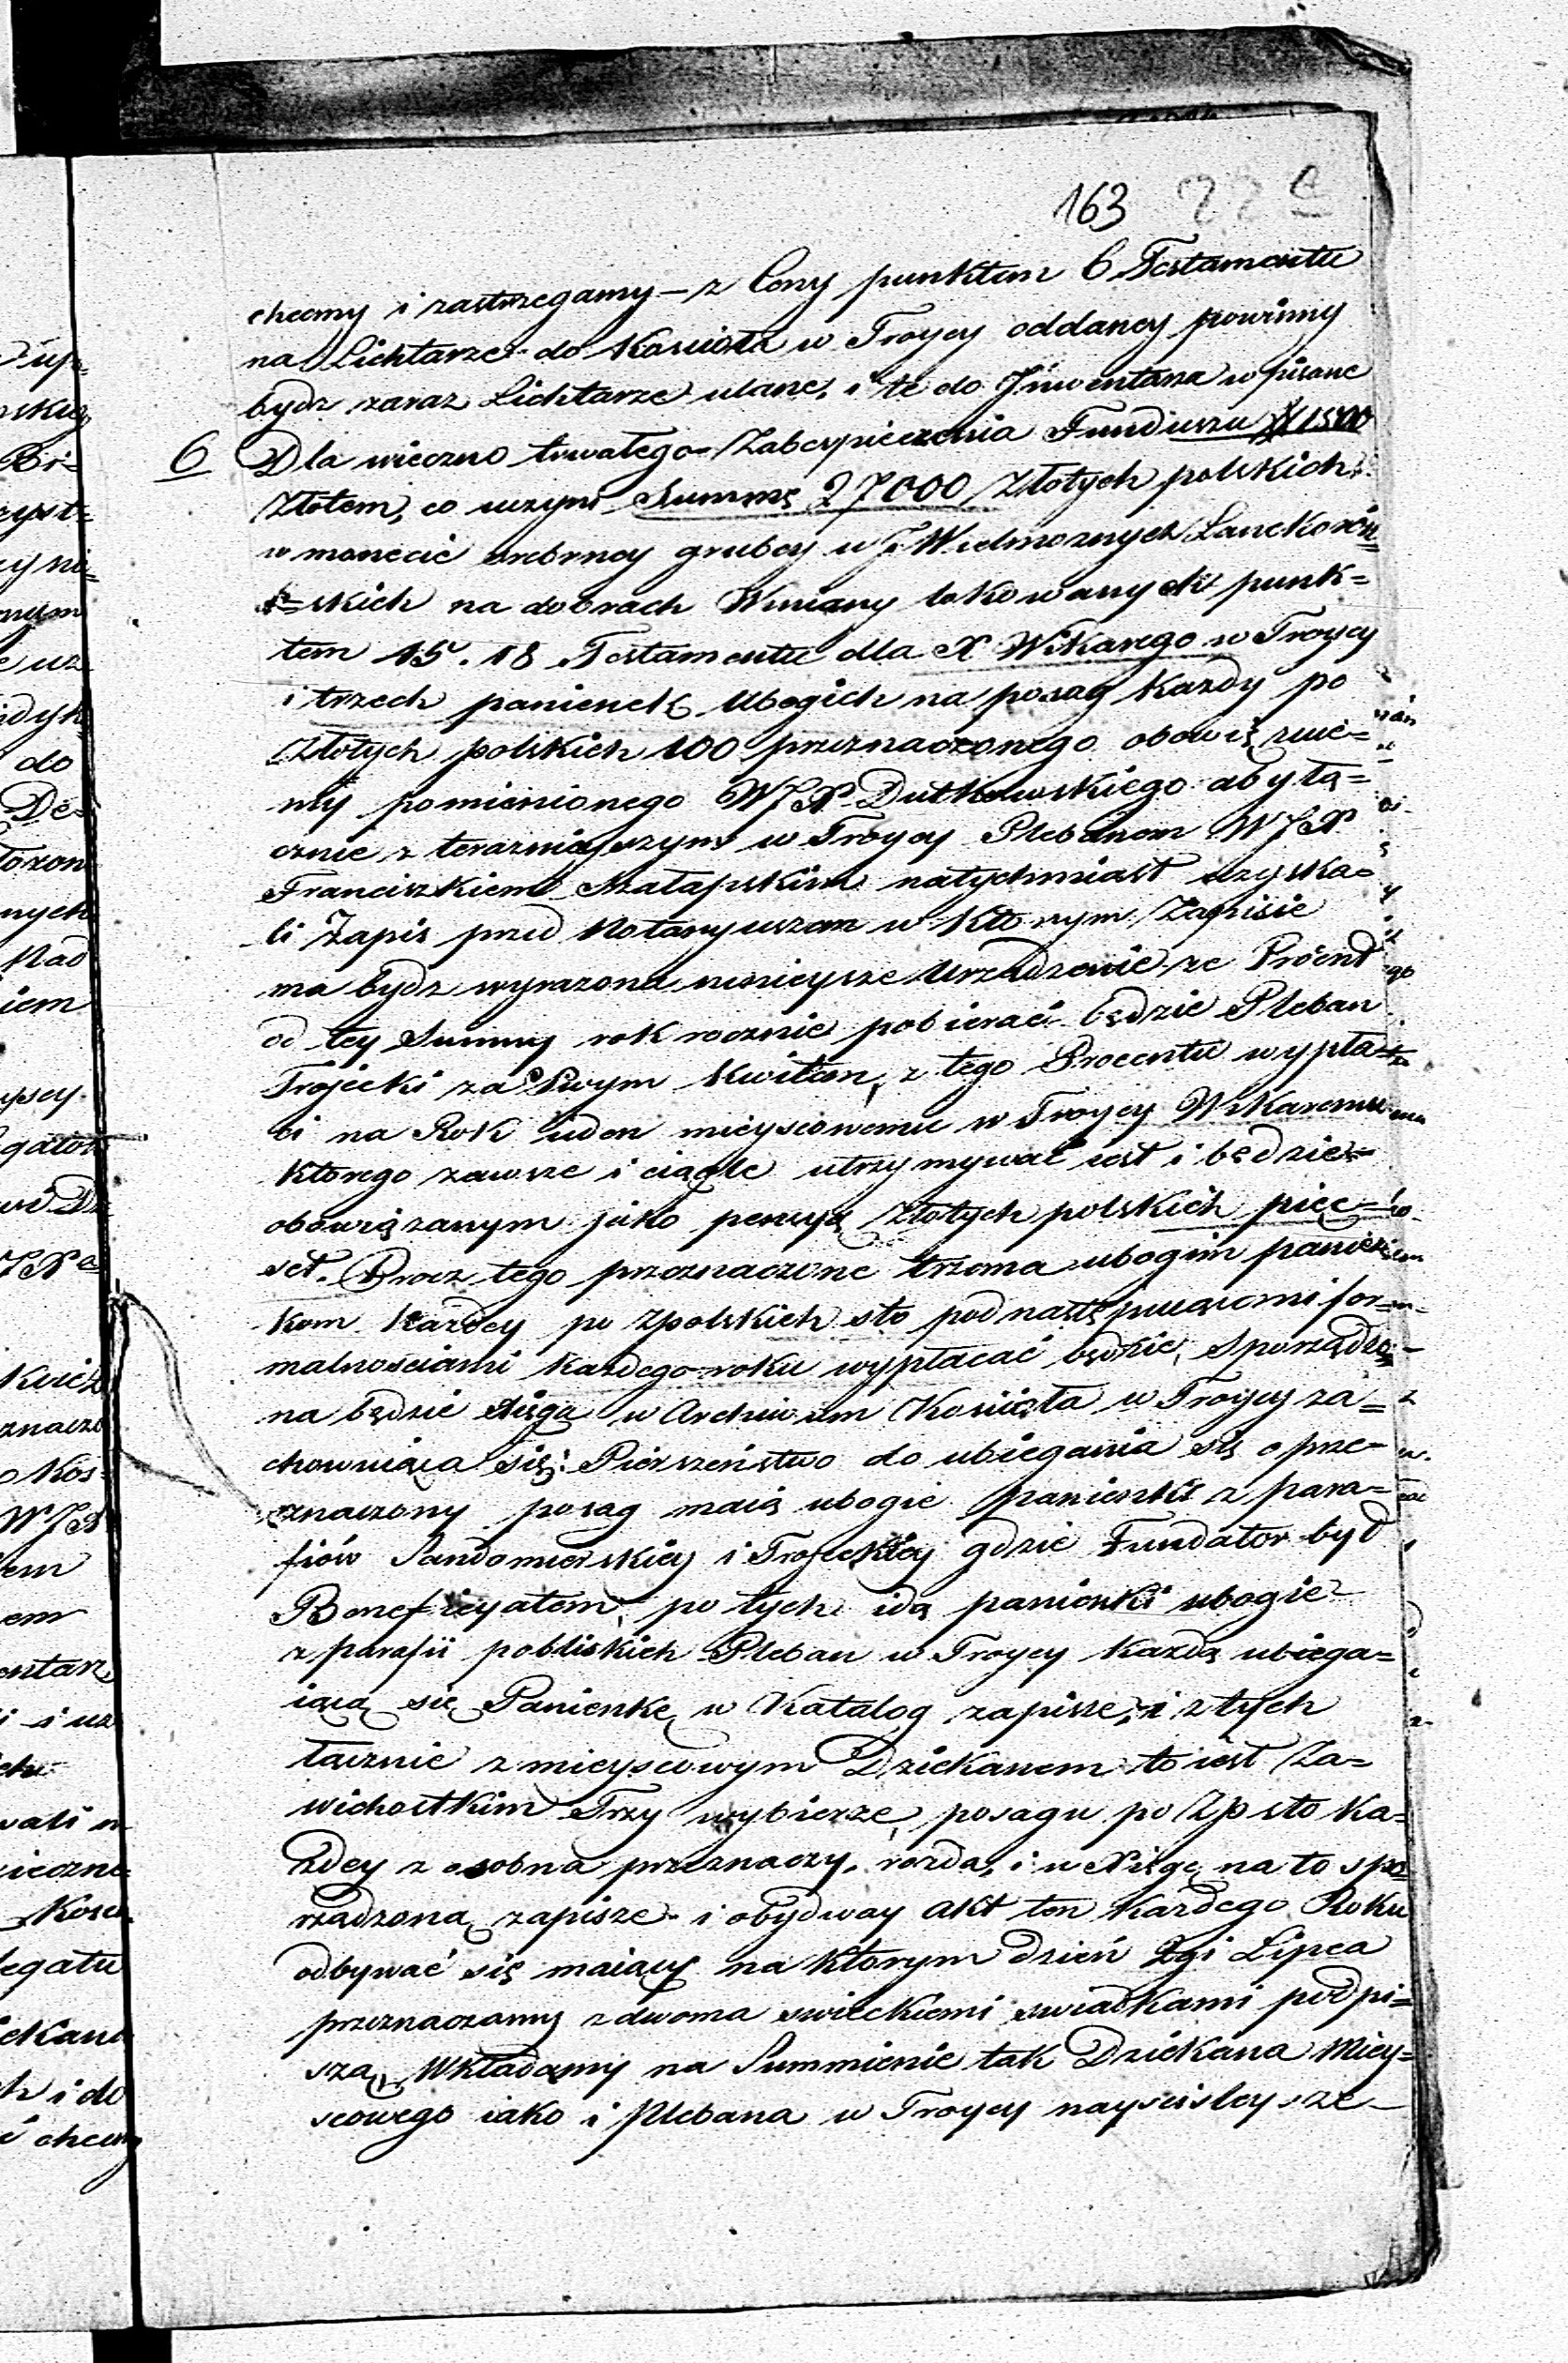 163 22
chcemy i zastrzegamy – z Ceny punktem 6 Testamentu
na Lichtarze do Kościoła w Troycy oddaney powinny
bydz zaraz Lichtarze ulane, i te do Jnwentarza wpisane
6 Dla wieczno trwałego Zabespieczenia Funduszu # 1500
Złotem, co uczyni Summę 27000 Złotych polskich
w monecie srebrney grubey u J Wielmoznych Lanckoroń=
skich na dobrach Winiary lokowanych punk=
tem 15. 18 Testamentu dla X Wikarego w Troycy
i trzech panienek Ubogich na posag Kazdy po
Złotych polskich 100 przeznaczonego obowiązuie=
my pomienionego WJX Dutkowskiego aby łą=
cznie z teraznieyszym w Troycy Plebanem WJX
Franciszkiem natychmiast uzyska=
li Zapis przed Notaryuszem w Ktorym Zapisie
ma bydz wyrazone ninieysze Urządzenie ze Procent
od tey Summy rok rocznie pobierać będzie Pleban
Trojecki za Swym Kwitem, z tego Procentu wypła=
ci na Rok ieden mieyscowemu w Troycy Wikaremu
ktorego zawsze i ciągle utrzymywać iest i będzie
obowiązanym jako pensyą Złotych polskich pięc=
set. Procz tego przeznaczone trzema ubogim panien
kom Kazdey po Zpolskich sto pod następuiącemi for=
malnosciami kazdego roku wypłacać będzie, Sporządzo=
na będzie Xięga w Archiwum Kościoła w Troycy za=
chowuiąca się: Pierszeństwo do ubiegania się o prze=
znaczony posag maią ubogie panienki z para=
fiów Sandomierskiey i Trojeckiey gdzie Fundator był
Beneficyatem, po tych idą panienki ubogie
z parafii pobliskich Pleban w Troycy Kazdą ubiega=
iącą się Panienkę w Katalog zapisze, i z tych
łącznie z mieyscowym Dziekanem to iest Za=
wichostkim Trzy wybierze, posagu po Zp sto Ka=
zdey z osobna przeznaczy, rozda, i w Xięgę na to spo=
rządzoną zapisze i obydway akt ten Każdego Roku
odbywać się maiący na ktorym dzień 2gi Lipca
przeznaczamy z dwoma swieckiemi swiadkami podpi=
szą, Wkładamy na Summienie tak Dziekana Miey=
scowego iako i Plebana w Troycy nayscisleysze